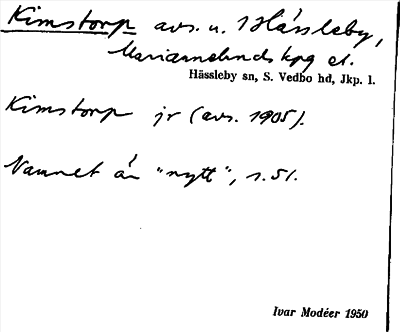 Kimstorp avs. u. 1 Hässleby,
Mariannelunds kpg et.
Hässleby sn, S. Vedbo hd, Jkp. l.
Kimstorp jr (avs. 1905).
Namnet är "nytt", s. 51.
Ivar Modéer 1950